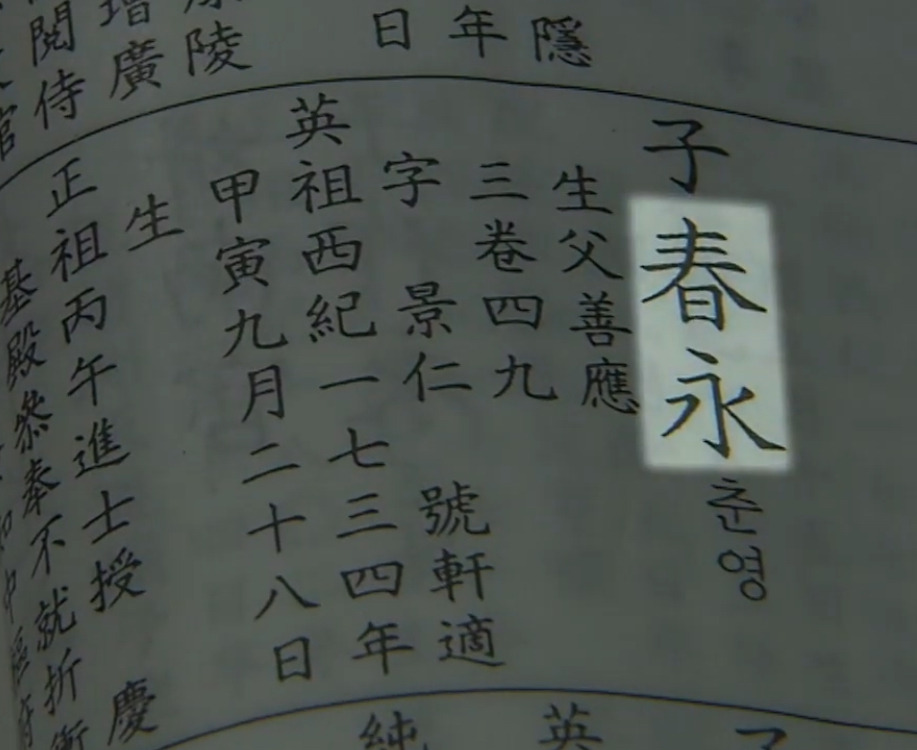 隱
年
日
陵
增廣
閱侍
子春永춘영
生父善應
三卷四九
字 景仁 號軒適
英祖西紀一七三四年
甲寅九月二十八日
生
正祖丙午進士授 慶
基殿叅奉不就折衝
英
純